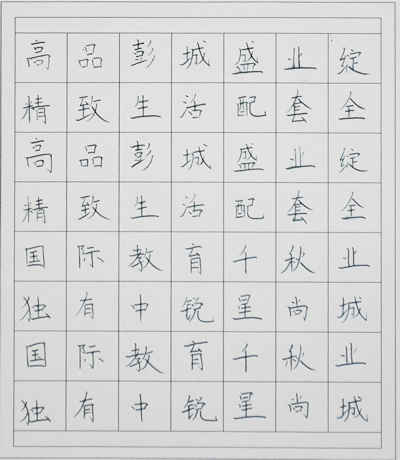 高品彭城盛业绽
精致生活配套全
高品彭城盛业绽
精致生活配套全
国际教育千秋业
独有中锐星尚城
国际教育千秋业
独有中锐星尚城